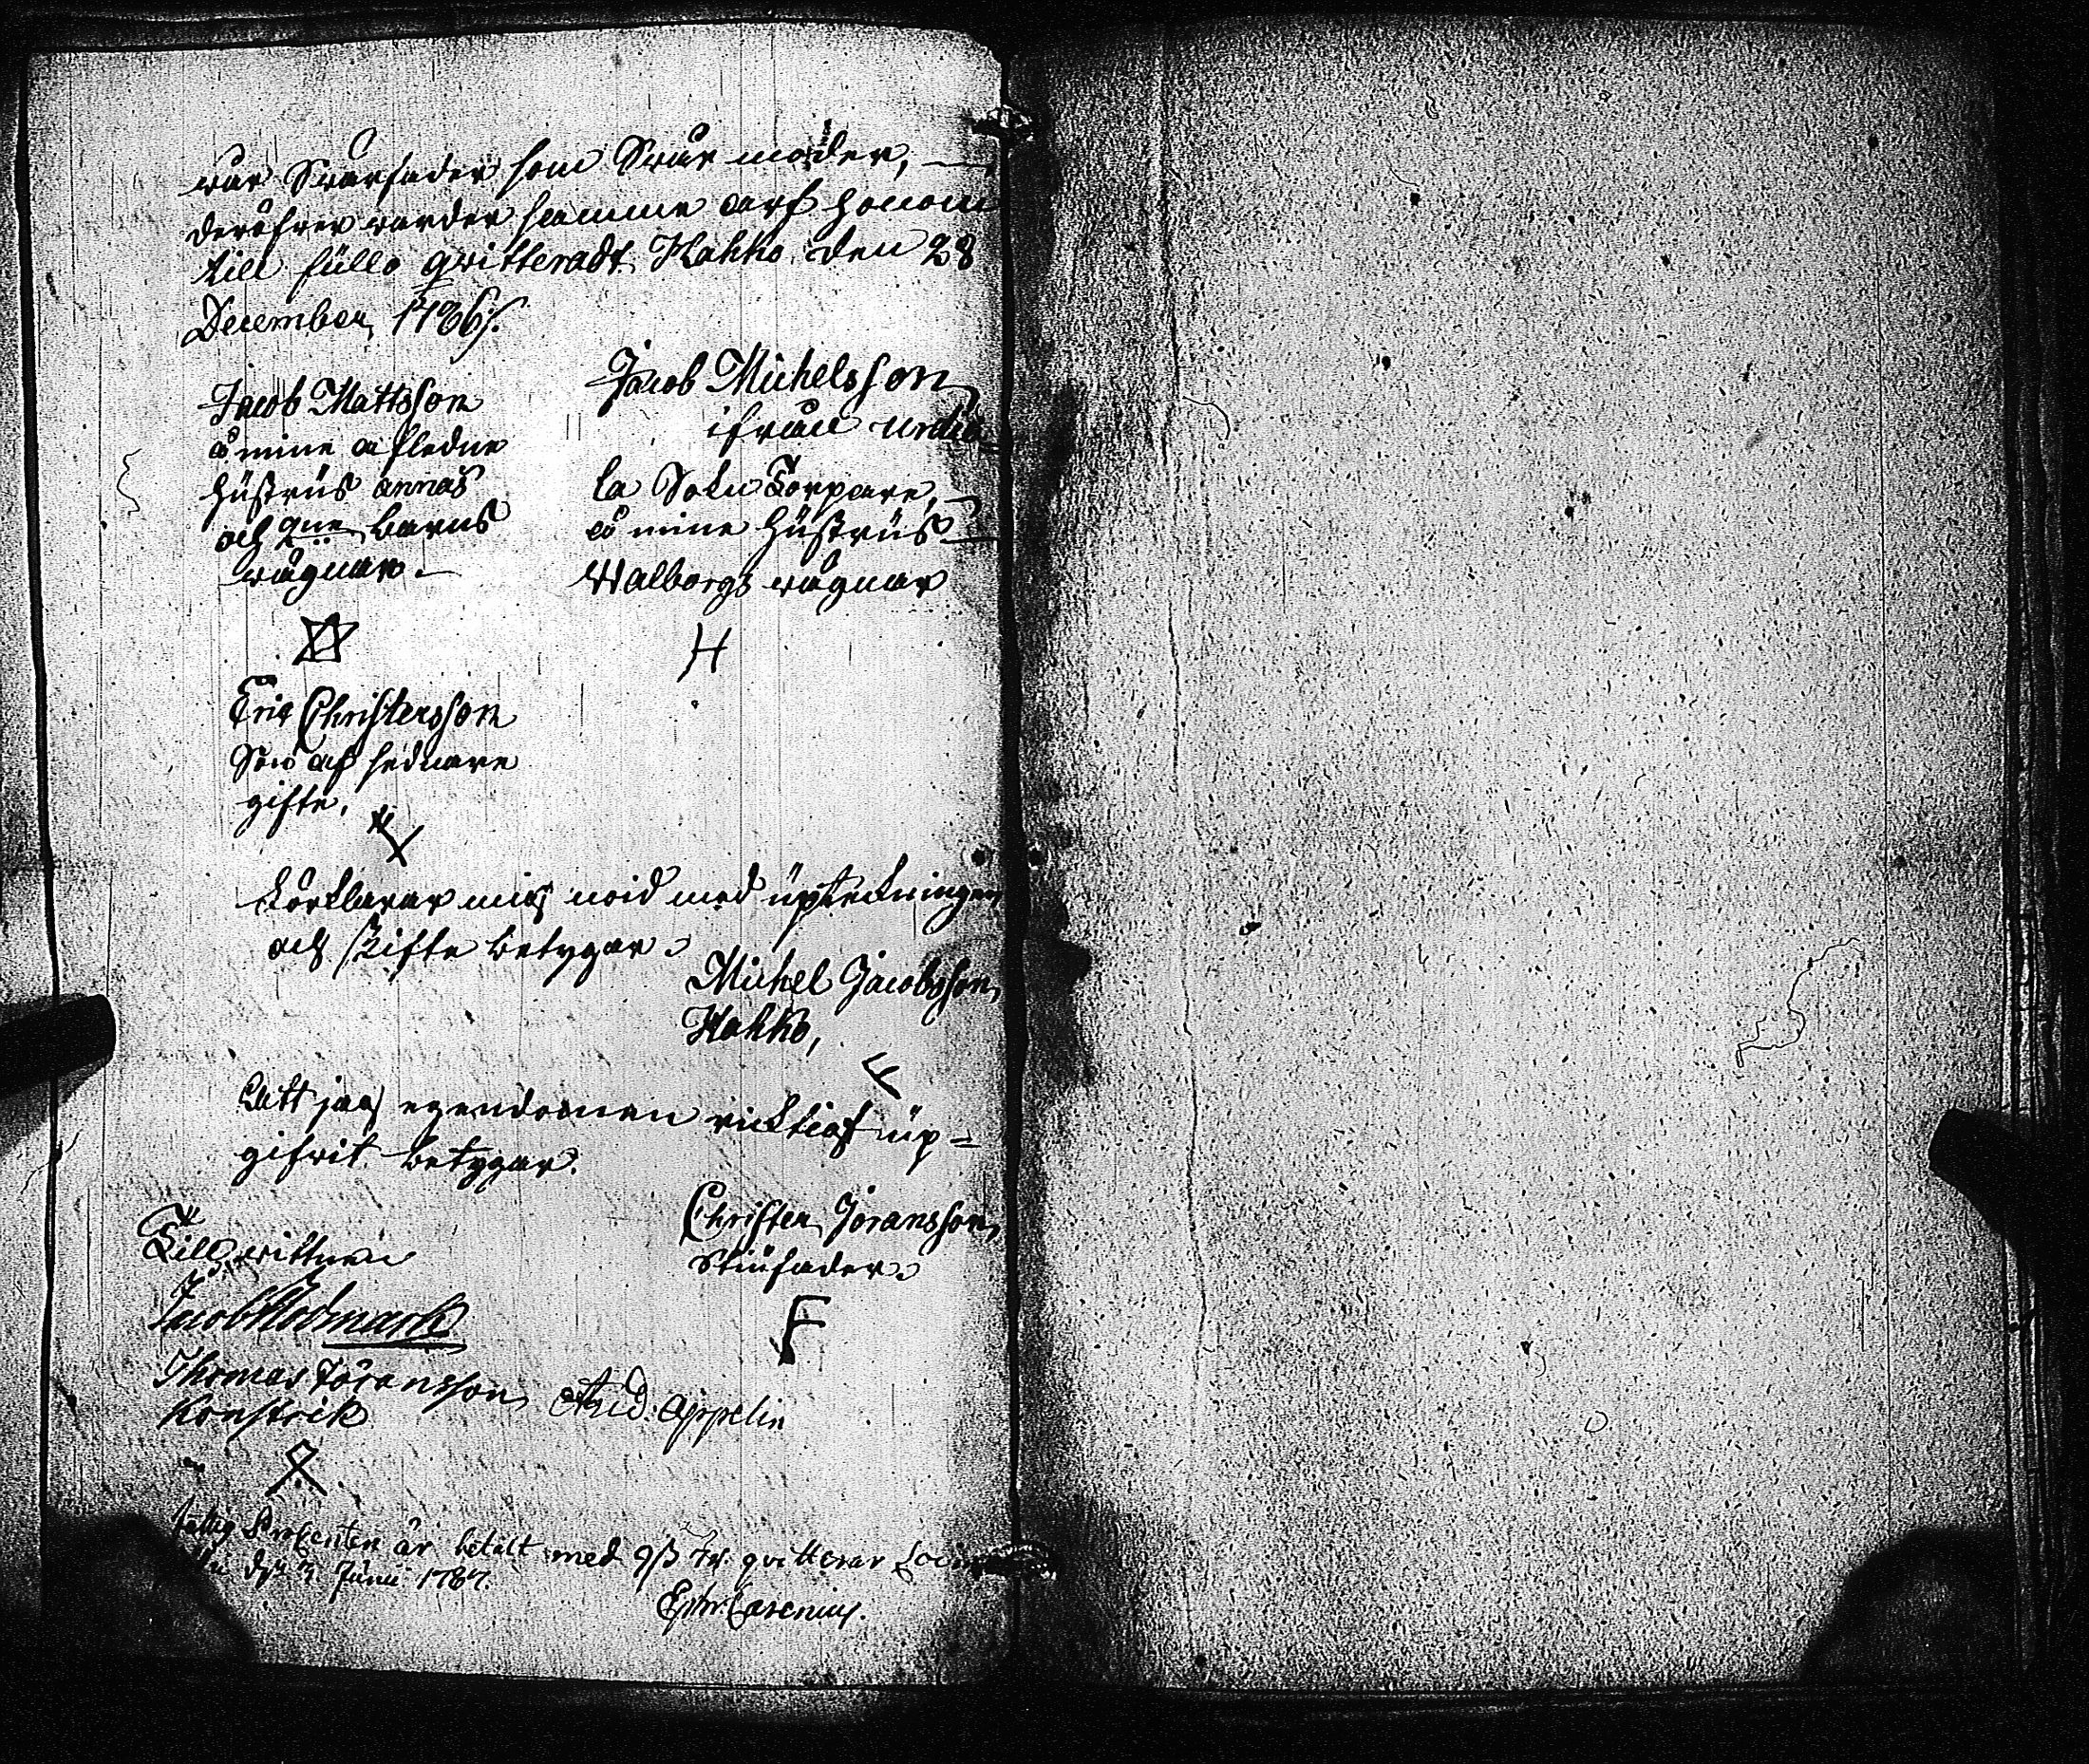 wår Swärfader som Swär moder,
deröfwer warder samma arf honom
till fullo qvitteradt Kahko den 28
December, 1786.
Jacob Mattsson
å mine afledne
Hustrus annas
och gne barns
wägnar.
Jacob Michelsson
ifrån urdia
la Sokn Torpare,
å mine Hustrus
Walborgs wägnar
H
Eric Christersson
Son af sednare
gifte.
Förklarar mig noid med upteckningen
och skifte betygar
Michel Jacobsson
Kahko,
Att jag egendomen ricktigt up=
gifwit betygar.
Christer Joransson
Stiufader
F
Till wittnen
Jacob Modmark
Thomas Jöransson
Konstrik
And: Appelin
fattig Procenten är betalt med 9 ß rg. qvitterar
3 Junii 1787.
Ephr. Carenius.